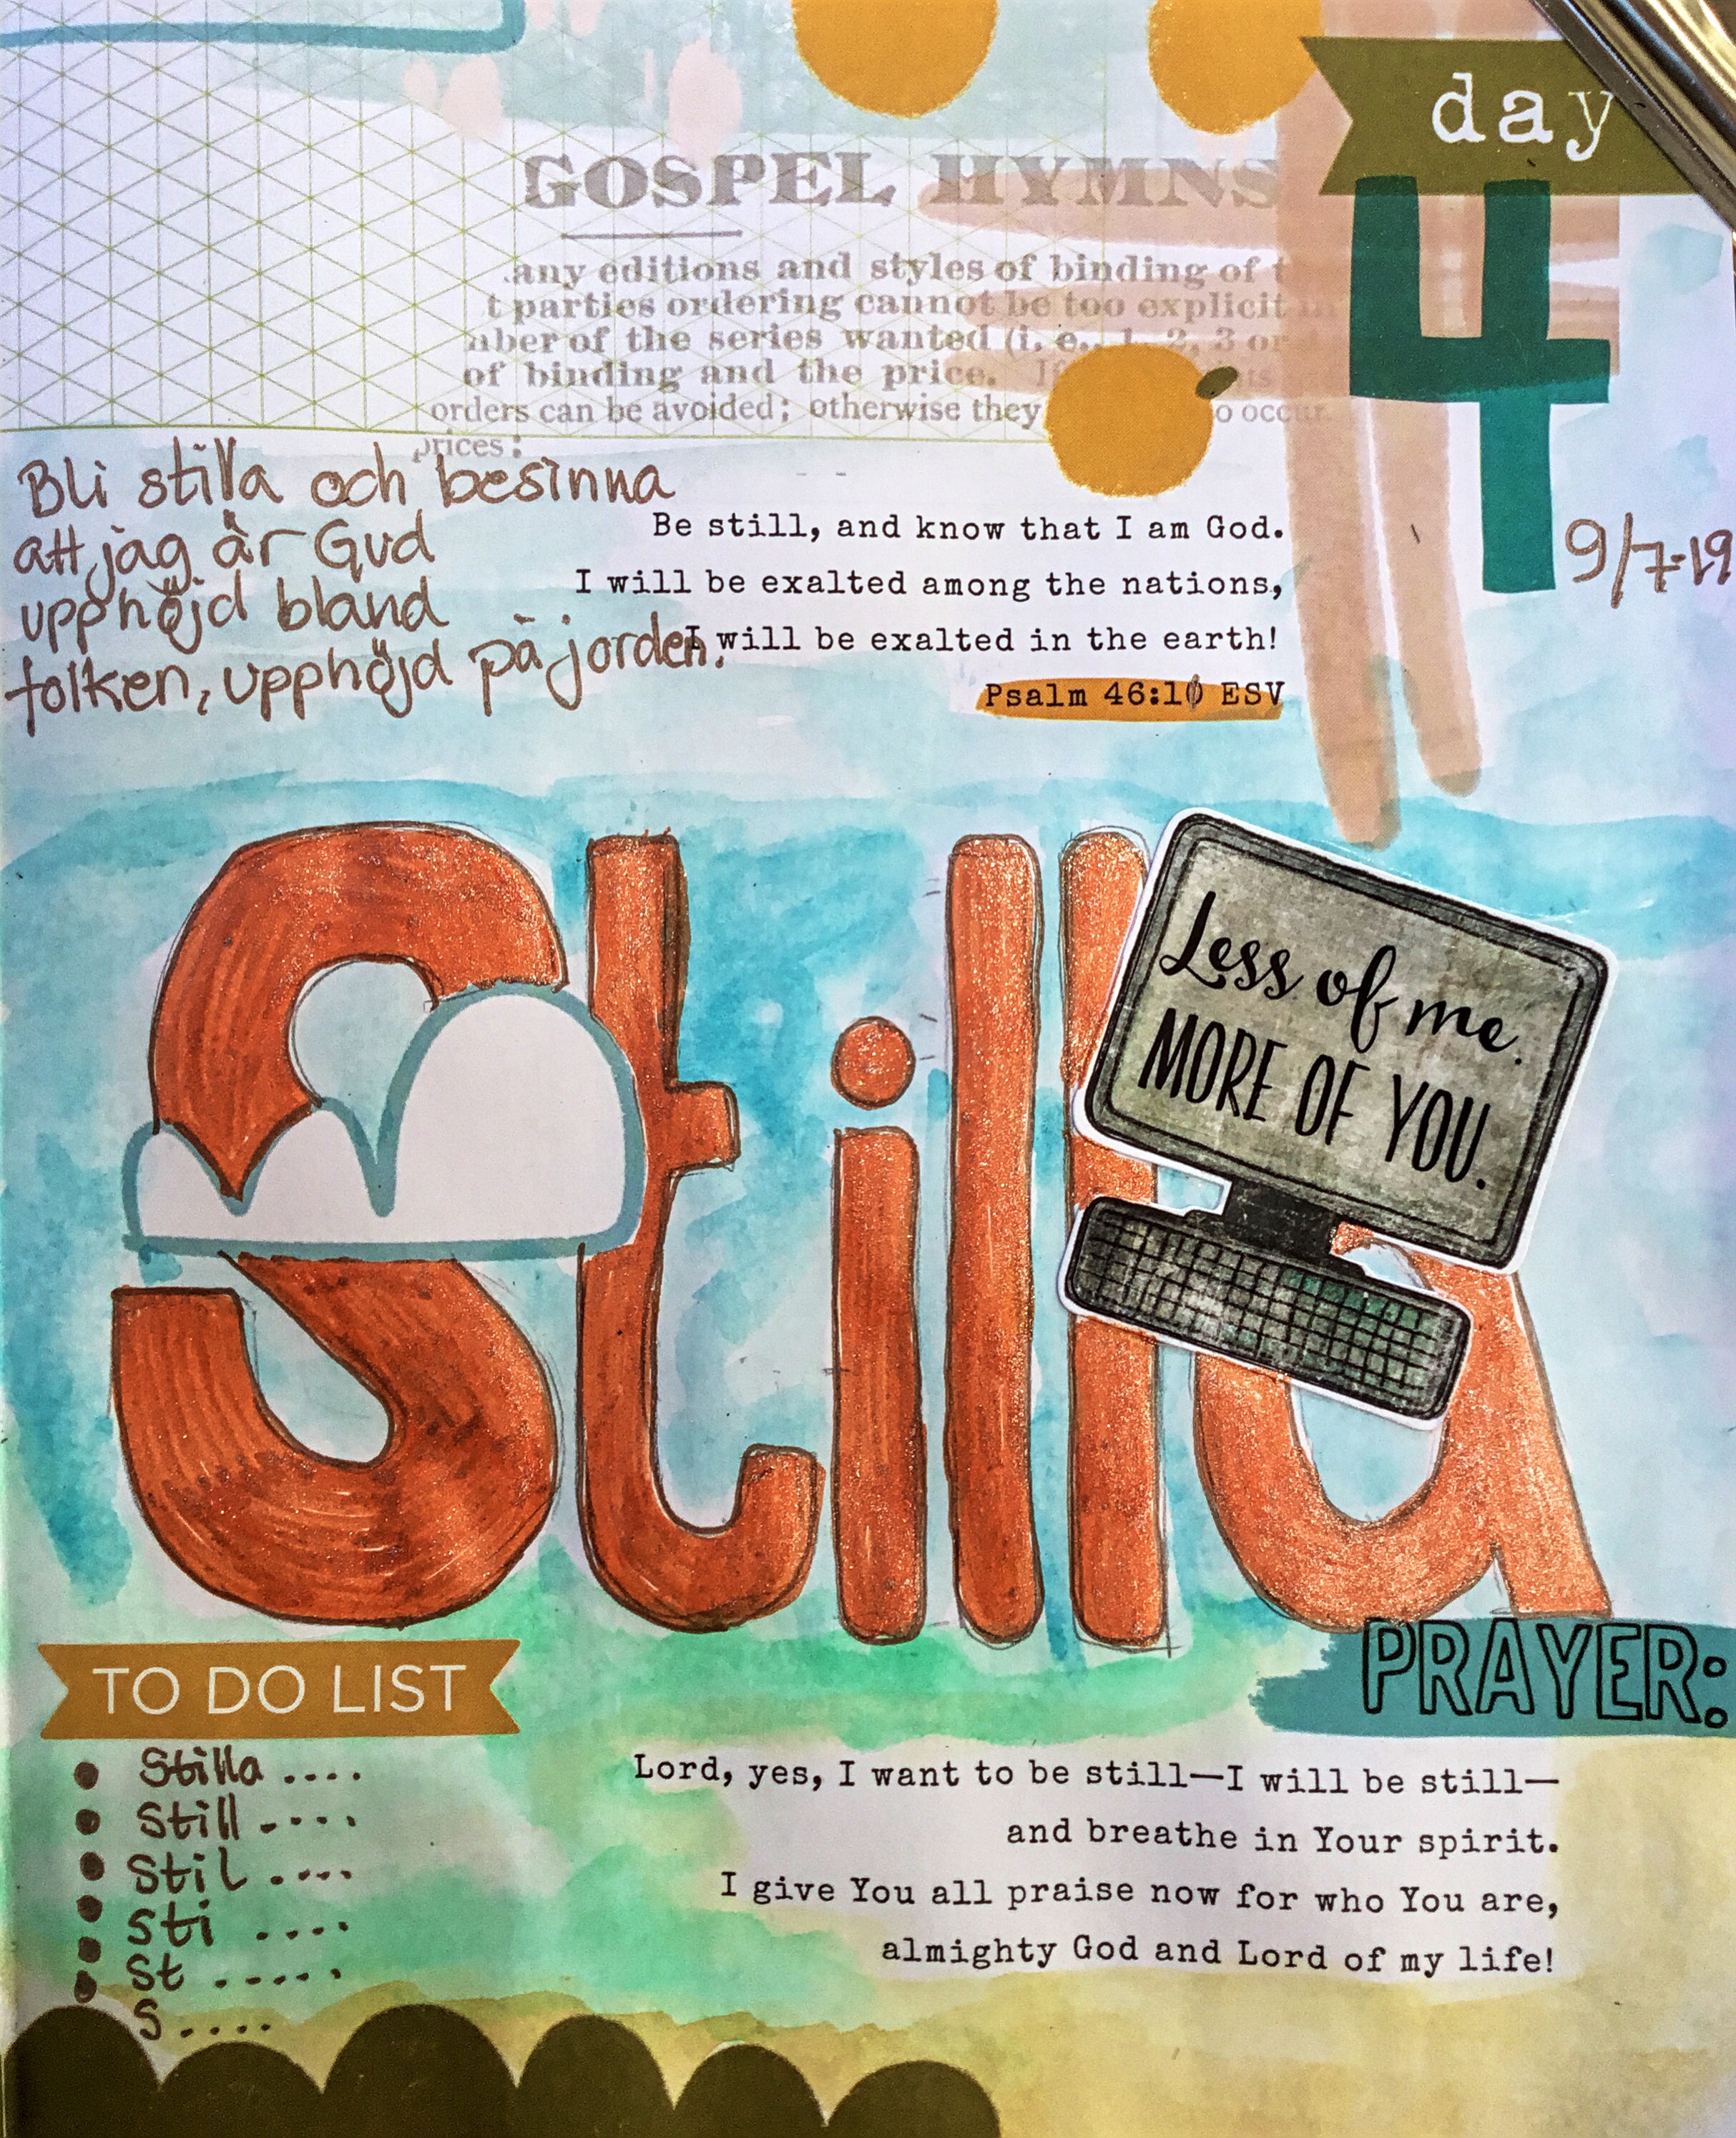 day
4
9/7-19
GOSPEL HYMNS
any editions and styles of binding of
t parties ordering cannot be too explicit in
nber of the series wanted (i. e., 1, 2, 3 or
of binding and the price. If
orders can be avoided; otherwise they o occur.
prices:
Bli stilla och besinna
att jag är Gud
upphöjd bland
folken, upphöjd på jorden.
Be still, and know that I am God.
I will be exalted among the nations,
I will be exalted in the earth!
Psalm 46:10 ESV
Stilla
Less of me.
MORE OF YOU.
TO DO LIST
• Stilla ....
• Still ....
• Stil ....
• Sti ....
• St .....
• S ....
PRAYER:
Lord, yes, I want to be still—I will be still—
and breathe in Your spirit.
I give You all praise now for who You are,
almighty God and Lord of my life!